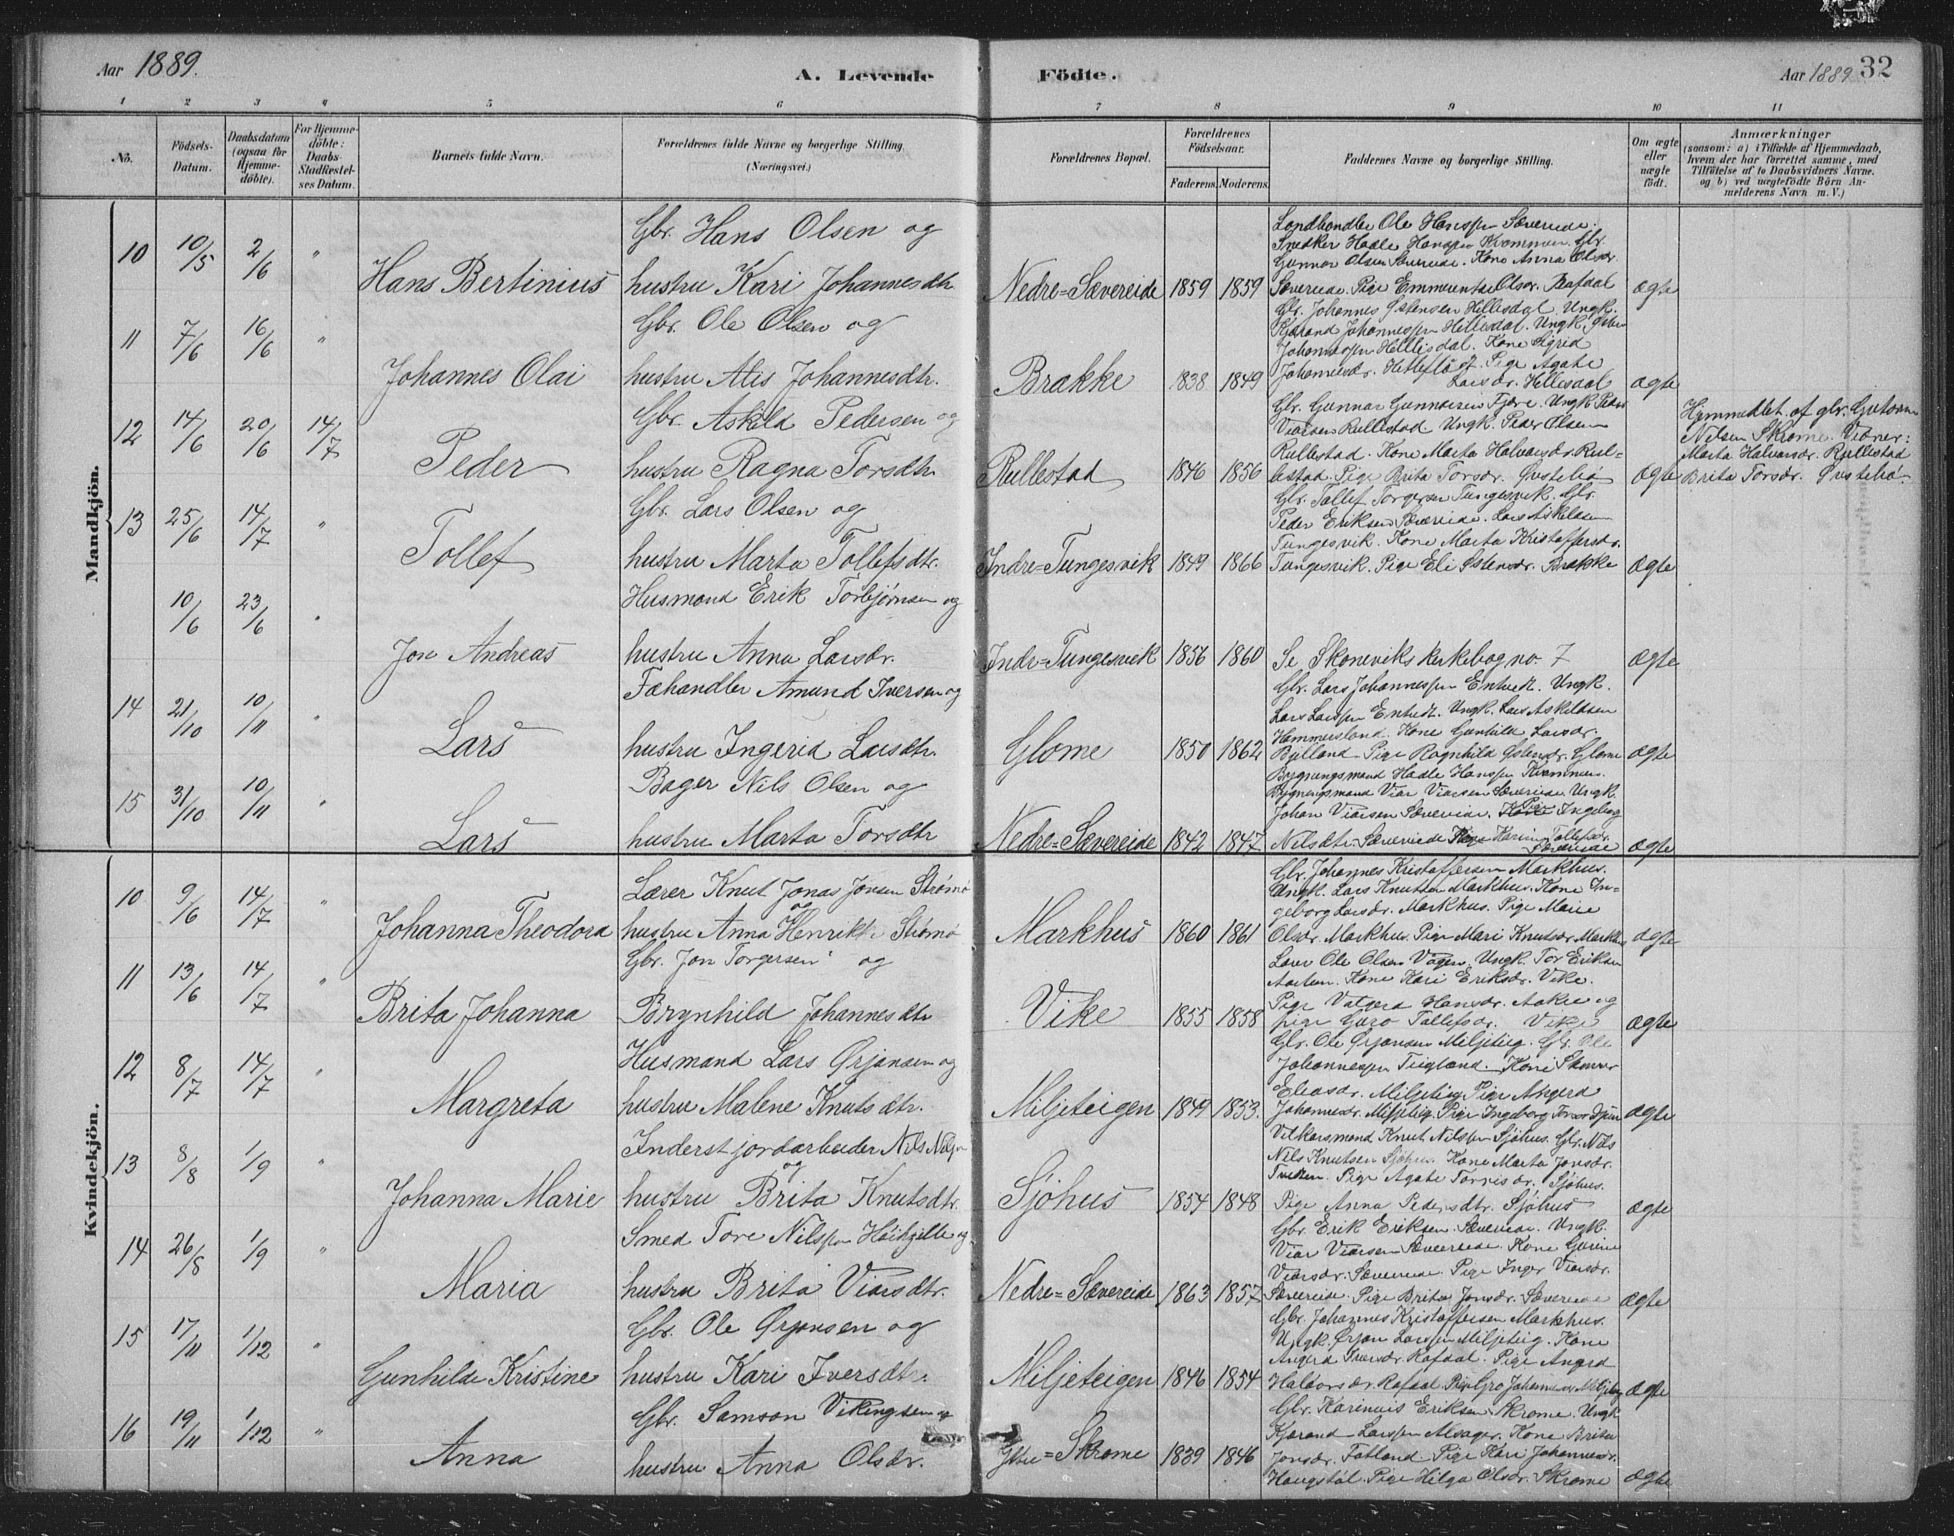 Aar 1889.
A. Levende Födte.
Aar 1889 32
1 2 3 4 5 6 7 8 9 10 11
No.
Födsels-Datum.
Daabsdatum (ogsaa for Hjemmedöbte).
For Hjemmedöbte: Daabs-Stadfæstelses Datum.
Barnets fulde Navn.
Forældrenes fulde Navne og borgerlige Stilling. (Næringsvei.)
Forældrenes Bopæl.
Forældrenes Födselsaar.
Faderens. Moderens.
Faddernes Navne og borgerlige Stilling.
Om ægte eller uægte födt.
Anmærkninger
(saasom: a) i Tilfælde af Hjemmedaab, hvem der har forrettet samme, med Tilföielse af to Daabsvidners Navne. og b) ved uægtefödte Börn Anmelderens Navn m. V.)
Mandkjön.
10 10/5 2/6 " Hans Bertinius
Gbr. Hans Olsen og
hustru Kari Johannesdtr
Nedre=Sævereide 1859 1859
Landhandler Ole Hanssen Sævereide.
Snedker Hadle Hanssen Kvammen. Gbr.
Gunnar Olsen Sævereide. Kone Anna Olsdr.
Sævereide. Pige Emmerentse Olsdr. Rafdal
ægte
11 7/6 16/6 " Johannes Olai
Gbr. Ole Olsen og
hustru Alis Johannesdtr.
Brakke 1838 1849
Gbr. Johannes Østensen Hellisdal. Ungk.
Johannessen Hellisdal. Ungk.
Johannessen Hellisdal. Kone Sigrid
Johannesdr. Pige Agate
Larsdr. Hellisdal
ægte
12 14/6 20/6 14/7 Peder
Gbr. Askild Pedersen og
hustru Ragna Torsdtr.
Rullestad 1846 1856
Gbr. Gunnar Gunnarsen Fjære. Ungk. Peder
Viarsen Rullestad Ungk. Peder Olsen
Rullestad. Kone Marta Halvorsdr. Rul-
lestad. Pige Brita Torsdr. Øvstebø
ægte
Hjemmedøbt af gbr. Gutorm
Nilsen Skrome. Vidner:
Marta Halvorsdr. Rullestad
Brita Torsdr. Øvstebø
13 25/6 14/7 " Tollef
Gbr. Lars Olsen og
hustru Marta Tollefsdtr.
Indre=Tungesvik 1849 1866
Gbr. Tollef Torgersen Tungesvik. Gbr.
Peder Eriksen Sævereide. Lars Askildsen
Tungesvik. Kone Marta Kristoffersdr.
Tungesvik. Pige Eli Østensdr. Brakke
ægte
10/6 23/6 " Jon Andreas
Husmand Erik Torbjørnsen og
hustru Anna Larsdr.
Indr=Tungesvik 1856 1860
Se Skoneviks kirkebog no. 7
ægte
14 21/10 10/11 " Lars
Fæhandler Amund Iversen og
hustru Ingerid Larsdtr.
Glome 1850 1862
Gbr. Lars Johannessen Entvedt. Ungk.
Lars Larssen Entvedt. Ungk. Lars Askildsen
Hammersland. Kone Gunhild Larsdr.
Bjelland. Pige Ragnhild Østensdr. Glome
ægte
15 31/10 10/11 " Lars
Bager Nils Olsen og
hustru Marta Torsdtr
Nedre=Sævereide 1842 1847
Bygningsmand Hadle Hanssen Kvammen.
Bygningsmand Viar Viarsen Sævereide Ungk.
Johan Viarsen Sævereide. Pige Ingeborg
Nilsdtr. Sævereide Kone Karin Tollefsdr.
Sævereide
ægte
Kvindekjön.
10 9/6 14/7 " Johanna Theodora
Lærer Knut Jonas Jonsen Strømø
og
hustru Anna Henrikke Strømø
Markhus 1860 1861
Gbr. Johannes Kristoffersen Markhus.
Ungk. Lars Knutsen Markhus. Kone In-
geborg Larsdr. Markhus. Pige Marie
Olsdr. Markhus. Pige Mari Knutsdr. Markhus
ægte
11 13/6 14/7 " Brita Johanna
Gbr. Jon Torgersen og
Brynhild Johannesdtr
Vike 1855 1858
Lærer Ole Olsen Vågen. Ungk. Tor Eriksen
Kone Kari Eriksdr. Vike.
Pige Valgerd Hansdr. Aakre og
pige Guro Tollefsdr. Vike
ægte
12 8/7 14/7 " Margreta
Husmand Lars Ørjansen og
hustru Malene Knutsdtr.
Miljeteigen 1849 1853.
Gbr. Ole Ørjansen Miljeteig. Gbr. Ole
Johannessen Tugland. Kone
Eleasdr. Miljeteig. Pige Angerd
Johannesdr. Miljeteig. Pige Ingeborg Torsdr.
ægte
13 8/8 1/9 " Johanna Marie
Inderst jordarbeider Nils Nilssen
og
hustru Brita Knutsdtr.
Sjöhus 1854 1848
Vilkaarsmand Knut Nilssen Sjöhus. Gbr. Nils
Nils Knutsen Sjöhus. Kone Marta Jonsdr.
Tveiten. Pige Agate Torrisdr. Sjöhus.
Pige Anna Pedersdtr. Sjöhus
ægte
14 26/8 1/9 " Maria
Smed Tore Nilssen Høikjelle og
hustru Brita Viarsdtr.
Nedre=Sævereide 1863 1857
Gbr. Erik Eriksen Sævereide. Ungk.
Viar Viarsen Sævereide. Kone Gurine
Viarsdr. Sævereide. Pige Inger Viarsdr.
Sævereide. Pige Brita Jonsdr. Sævereide
ægte
15 17/11 1/12 " Gunhilde Kristine
Gbr. Ole Ørjansen og
hustru Kari Iversdtr.
Miljeteigen 1846 1854
Gbr. Johannes Kristoffersen Markhus.
Ungk. Ørjan Larssen Miljeteig. Kone
Angerd Iversdr. Rafdal. Pige Angerd
Haldorsdr. Rafdal Pige Gro Johannesdr. Miljeteig
ægte
16 19/11 1/12 " Anna
Gbr. Samson Vikingsen og
hustru Anna Olsdr.
Ytre=Skrome 1839 1846
Gbr. Eriksen Skrome. Ungk
Larssen Alsager. Kone Brita
Jonsdr. Fatland. Pige Kari Johannesdr.
Haugstøl. Pige Helga Olsdr. Skrome
ægte